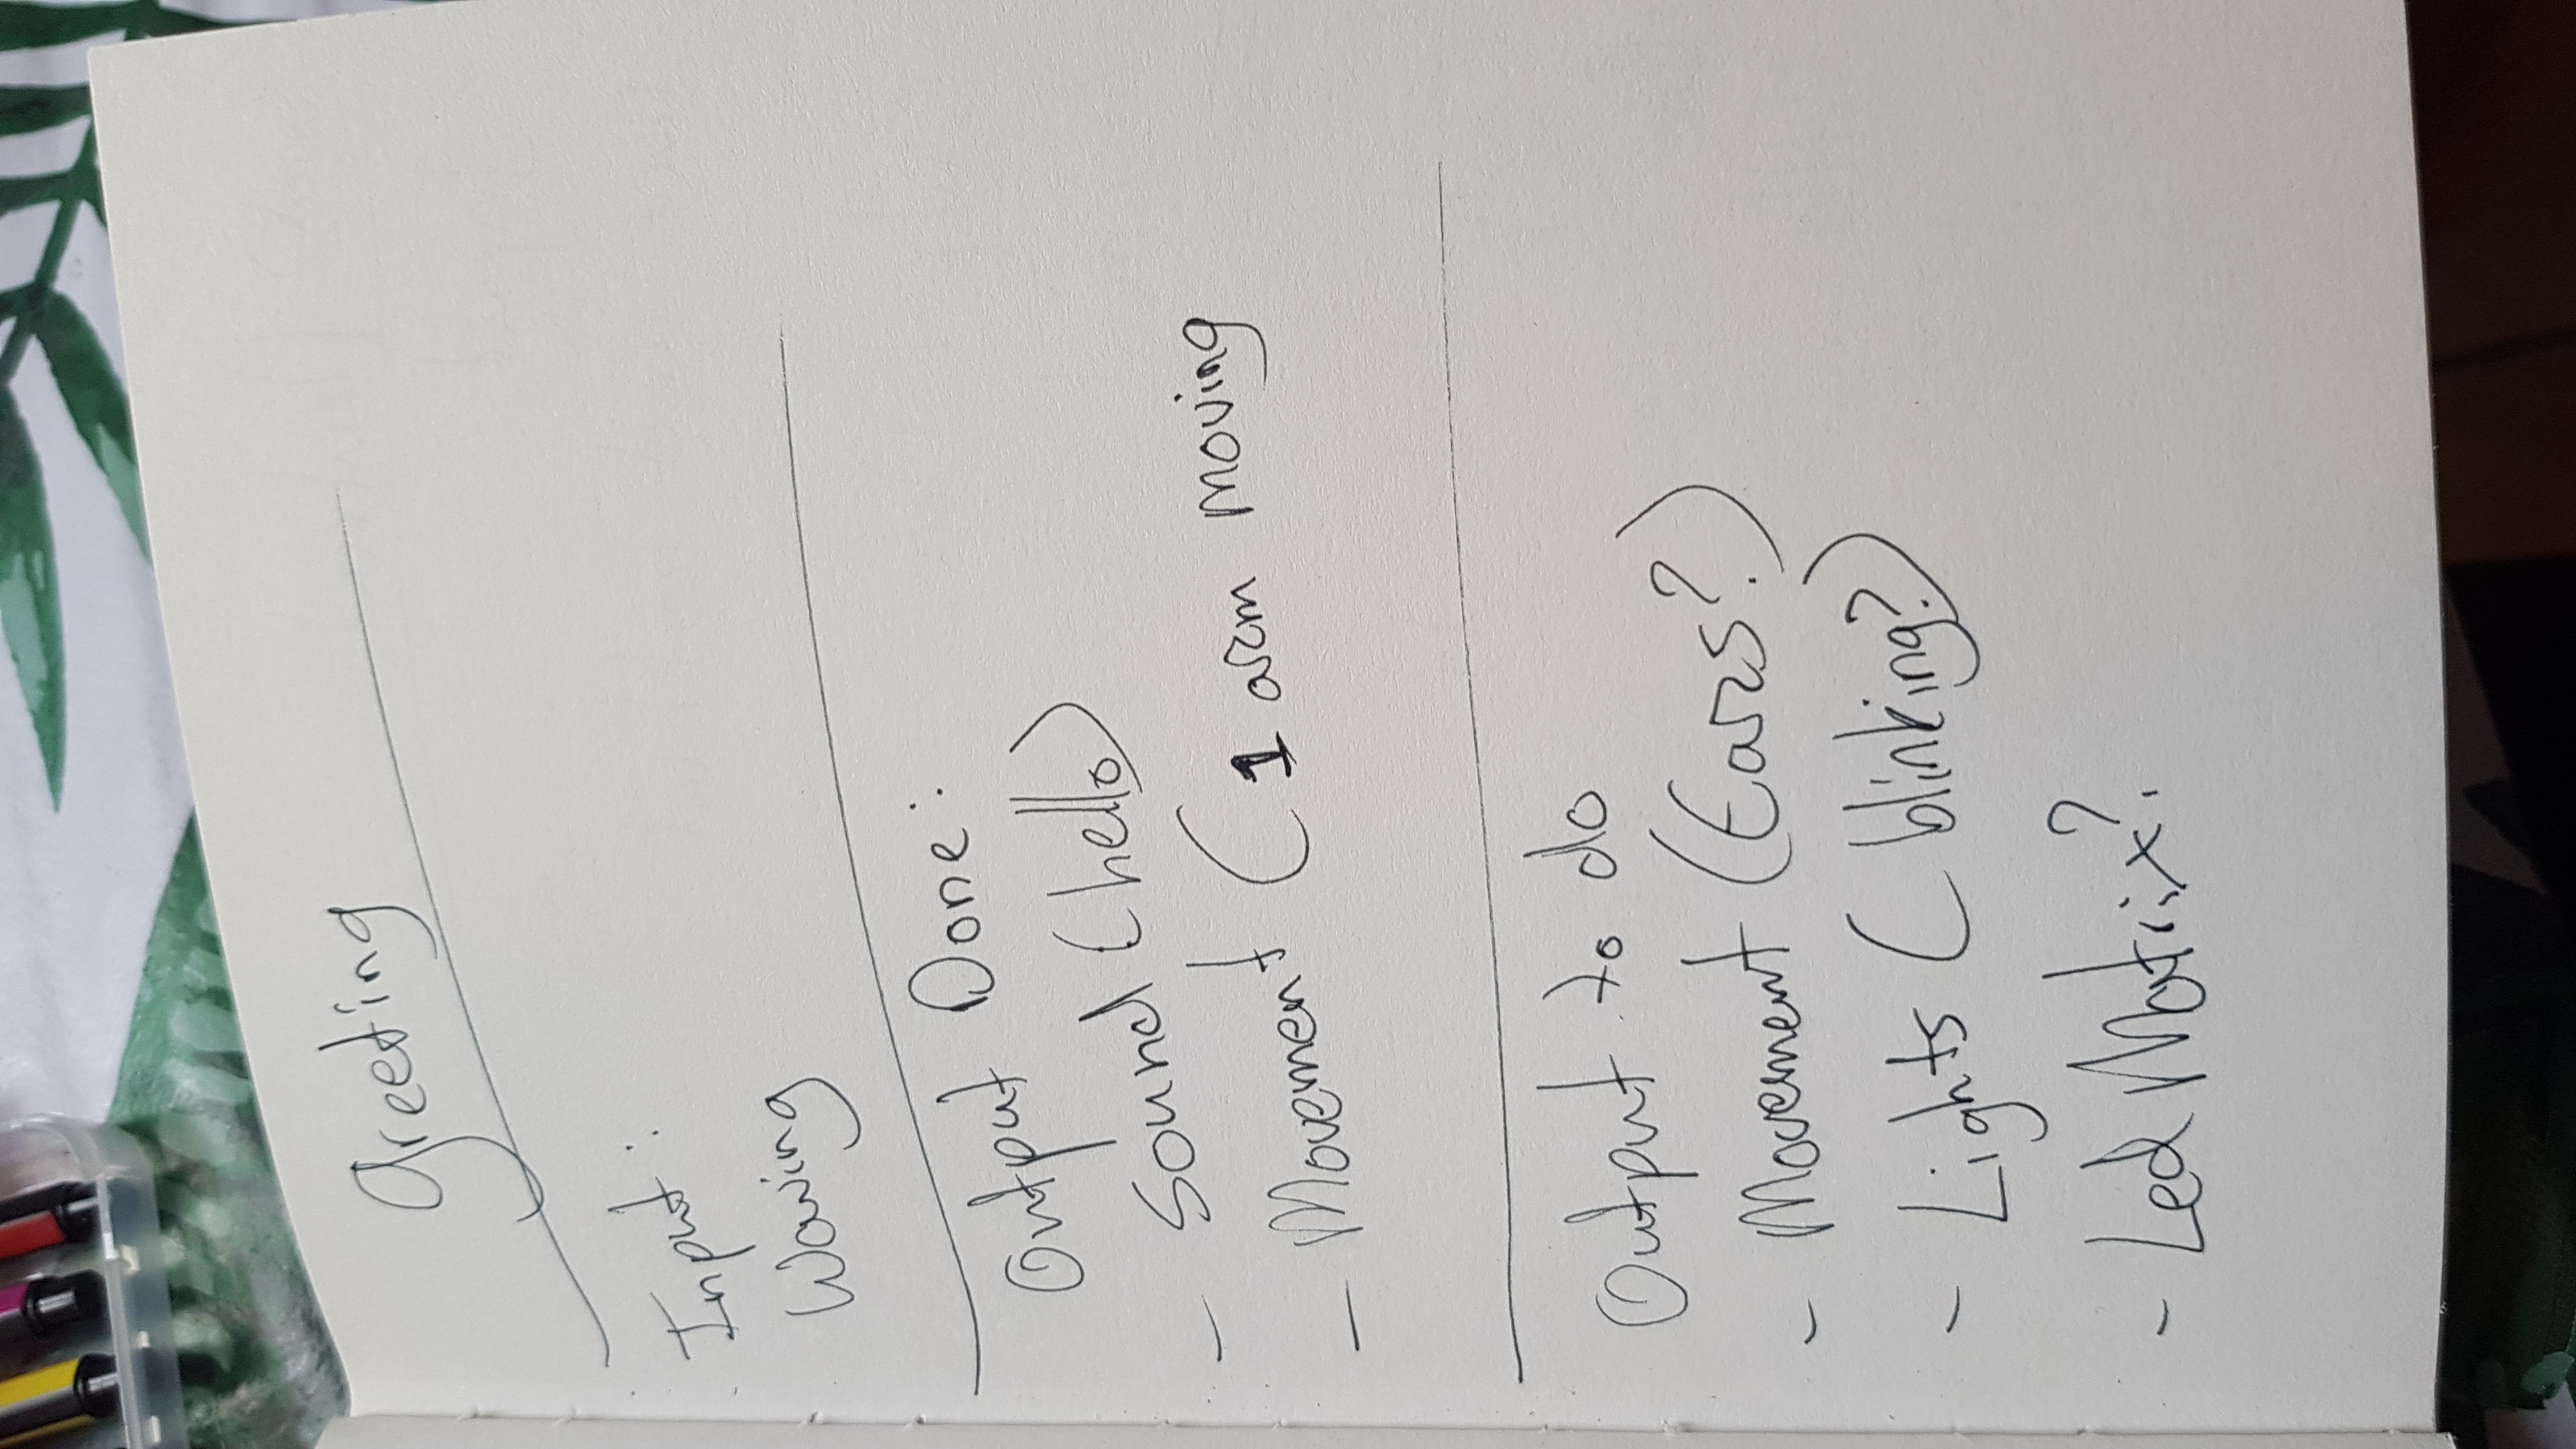 Greeting
Input :
Waving
Output Done :
- Sound (hello)
- Movement ( 1 arm moving
Output to do
- Movement (Ears?)
- Lights ( blinking?)
- Led Matrix?